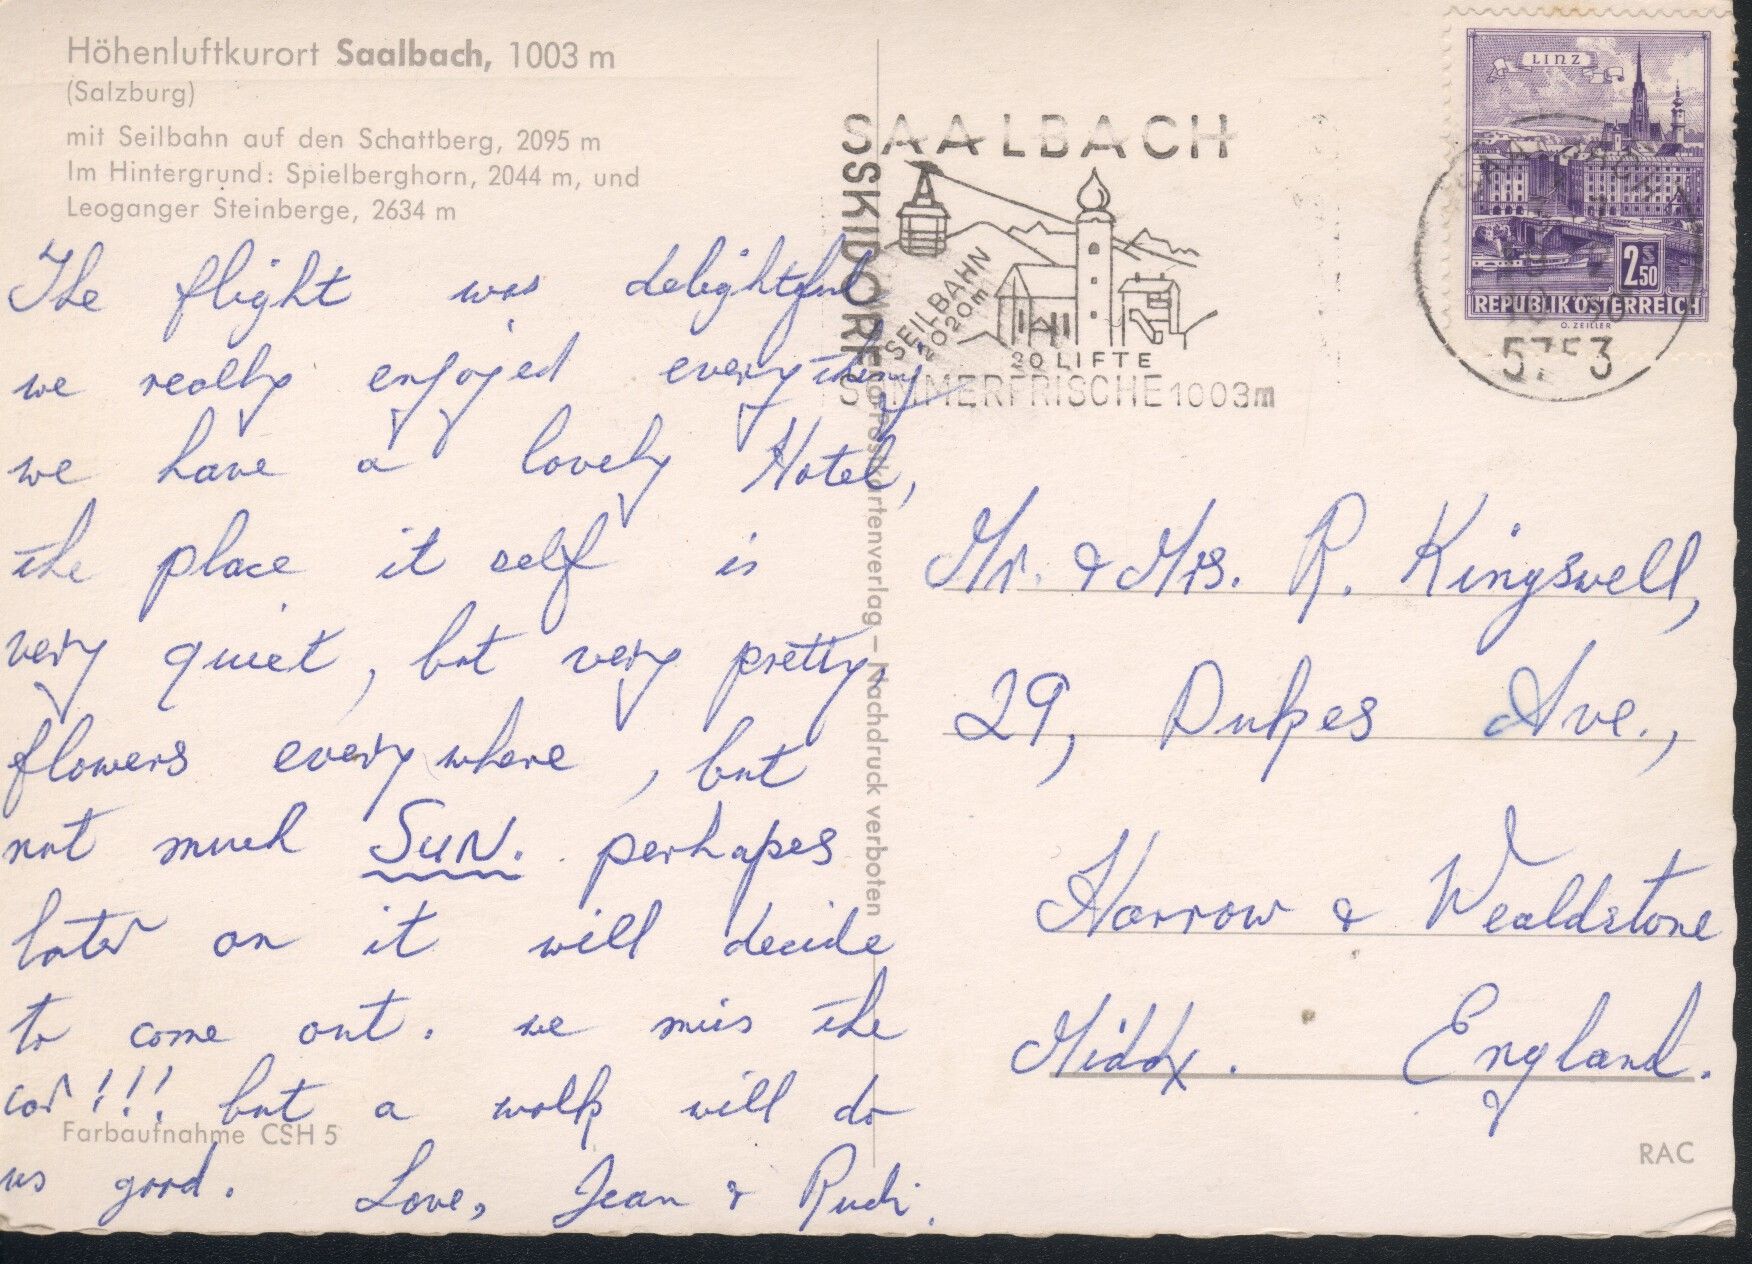 Höhenluftkurort Saalbach, 1003 m
(Salzburg)
mit Seilbahn auf den Schattberg, 2095 m
Im Hintergrund: Spielberghorn, 2044 m, und
Leoganger Steinberge, 2634 m
The flight was delightful
we really enjoyed everything
we have a lovely Hotel,
the place it self is
very quiet, but very pretty,
flowers everywhere, but
not much SUN. perhapes
later on it will decide
to come out. we mis the
car!!! but a walk will do
us good. Love, Jean & Rudi.
Farbaufnahme CSH 5
Postkartenverlag – Nachdruck verboten
SAALBACH
SSKIDORF
SEILBAHN
2020m
20 LIFTE
SOMMERFRISCHE 1003m
LINZ
2S50
REPUBLIK ÖSTERREICH
O. ZEILLER
5753
Mr. & Mrs. R. Kingswell,
29, Dukes Ave.,
Harrow & Wealdstone
Middx. England.
RAC